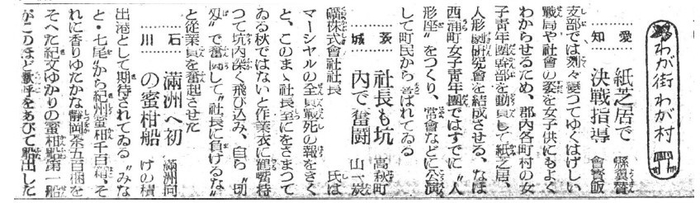 わが街わが村
愛知
紙芝居で
決戰指導
縣翼賛
會寶飯
支部では刻々變つてゆくはげしい
戰局や社會の姿を女子供にもよく
わからせるため、郡内各町村の女
子青年團幹部を動員して紙芝居、
人形劇研究會を結成させる、なほ
西浦町女子青年團ではすでに〝人
形座〟をつくり、常會などに公演
して町民から喜ばれてゐる
茨城
社長も坑
内で奮闘
高萩町
山一炭
礦株式會社社長 氏は
マーシヤルの全員戰死の報をきく
と、このまゝ社長室にをさまつて
ゐる秋ではないと作業衣に
つて坑内深く飛び込み、自ら〝切
羽〟で奮闘して〝社長に負けるな〟
と從業員を奮起させた
石川
滿洲へ初
の蜜柑船
滿洲向
けの積
出港として期待されてゐる〝みな
と・七尾〟から紀州蜜柑千百箱、そ
れに香りゆたかな靜岡茶五百梱を
そへた紀文ゆかりの蜜柑船第一船
がこのほど歡呼をあびて船出した